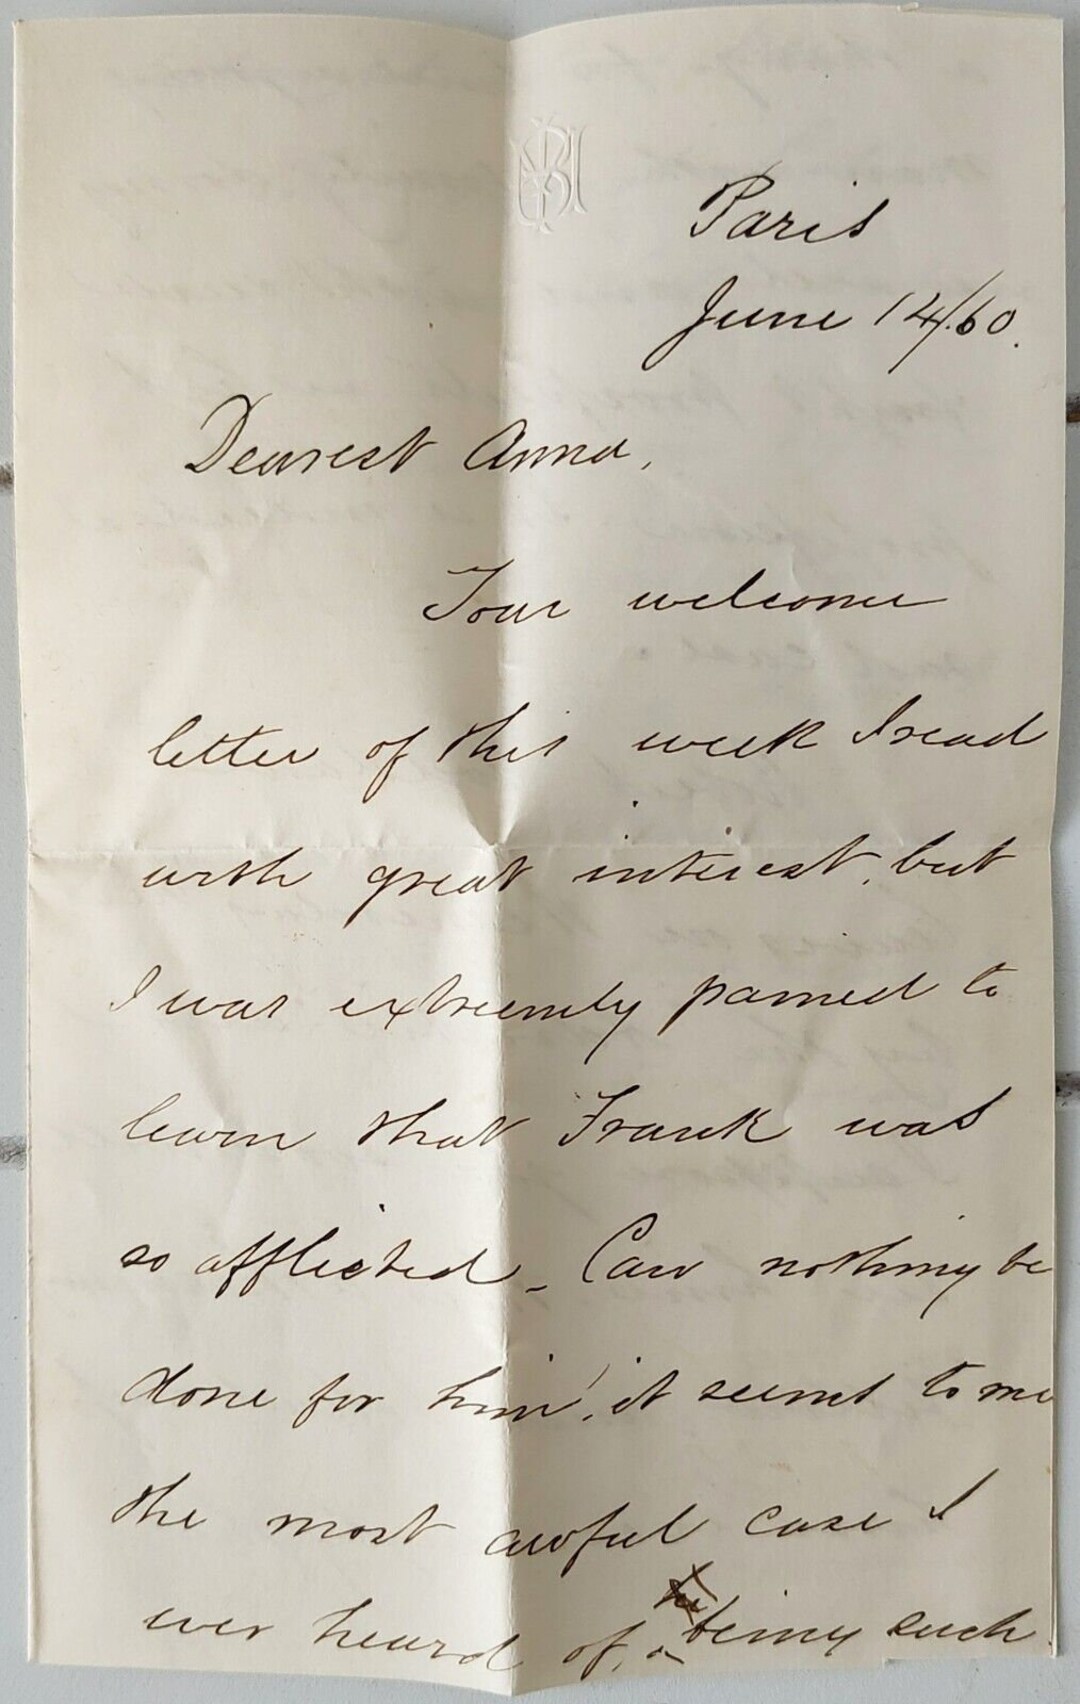 Paris
June 14/60.
Dearest Anna,
Your welcome
letter of this week I read
with great interest, but
I was extremely pained to
learn that Frank was
so afflicted - Can nothing be
done for him! it seems to me
the most awful case I
ever heard of, he being such